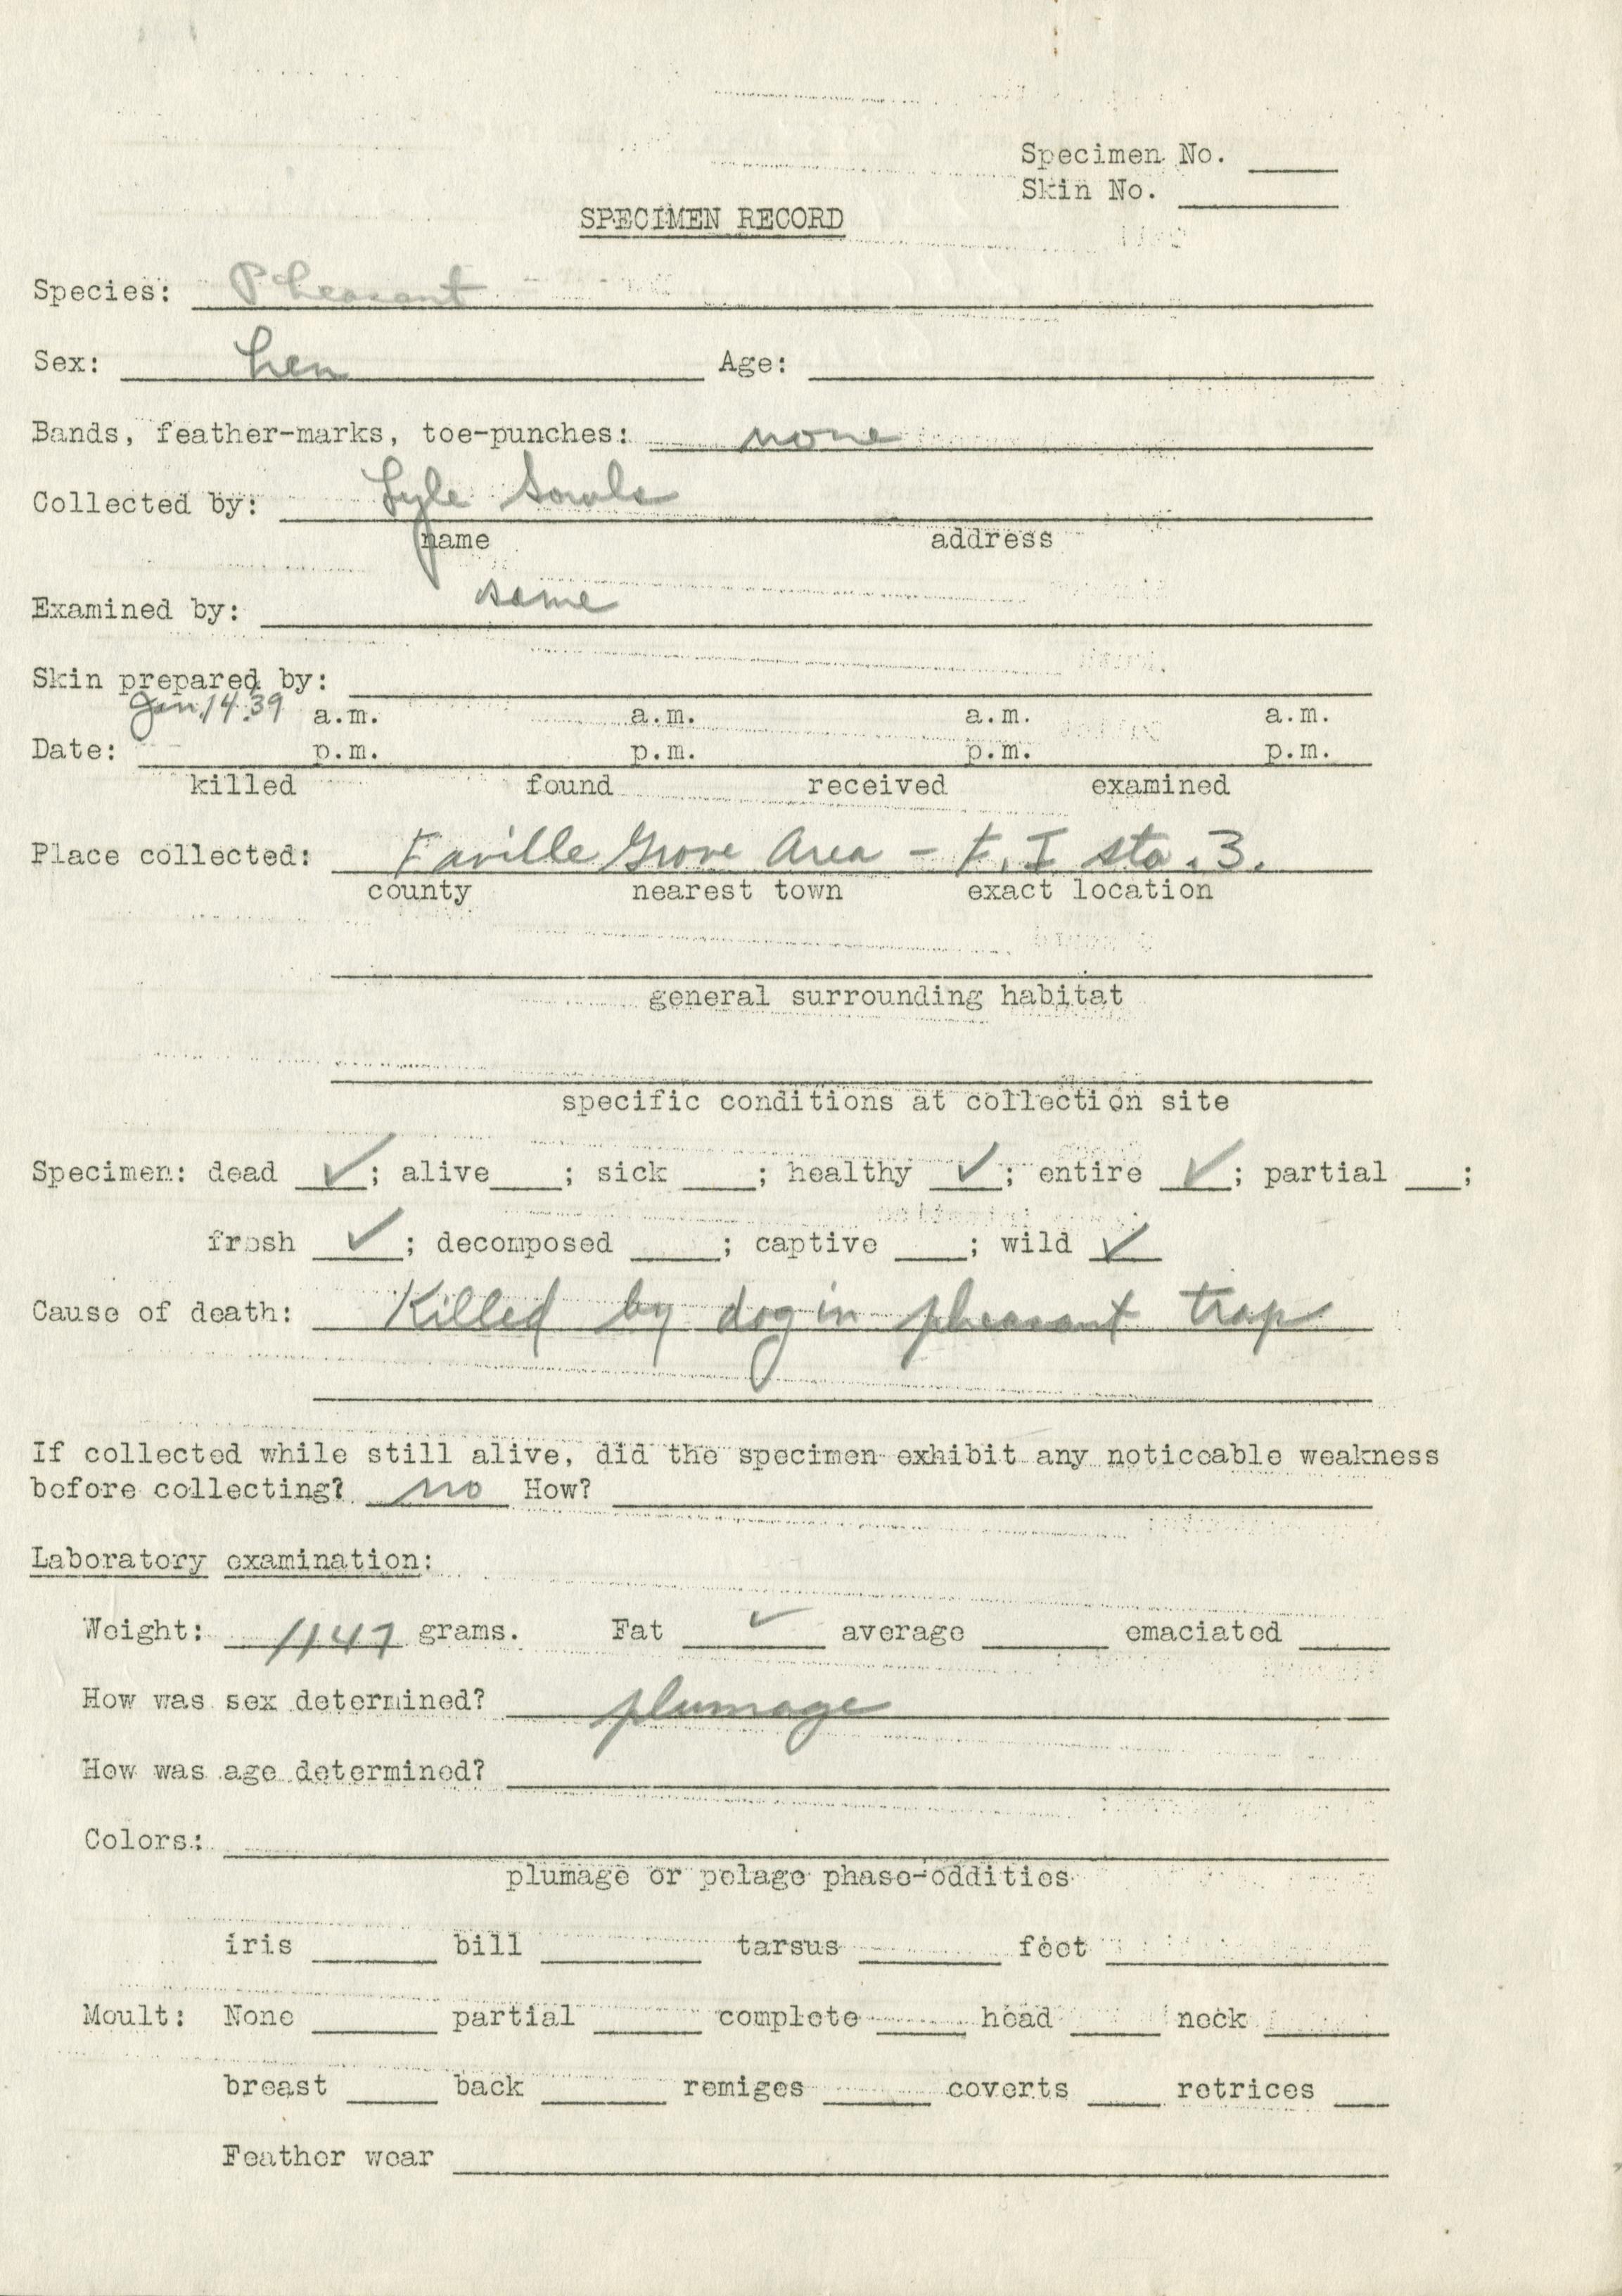 Specimen No. ____
Skin No. ____
SPECIMEN RECORD
Species: Pheasant
Sex: hen Age:
Bands, feather-marks, toe-punches: none
Collected by: Lyle Sowls
name address
Examined by: same
Skin prepared by:
Jan. 14. 39 a.m. a.m. a.m. a.m.
Date: p.m. p.m. p.m. p.m.
killed found received examined
Place collected: Faville Grove Area - F. I sta. 3.
county nearest town exact location
general surrounding habitat
specific conditions at collection site
Specimen: dead ✓; alive ___; sick ___; healthy ✓; entire ✓; partial ___;
fresh ✓; decomposed ____; captive ___; wild ✓
Cause of death: Killed by dog in pheasant trap
If collected while still alive, did the specimen exhibit any noticeable weakness
before collecting? no How?
Laboratory examination:
Weight: 1147 grams. Fat ✓ average ____ emaciated ____
How was sex determined? plumage
How was age determined?
Colors:
plumage or pelage phase-oddities
iris ____ bill ____ tarsus ____ feet ____
Moult: None ____ partial ____ complete ____ head ____ neck ____
breast ____ back ____ remiges ____ coverts ____ retrices ____
Feather wear